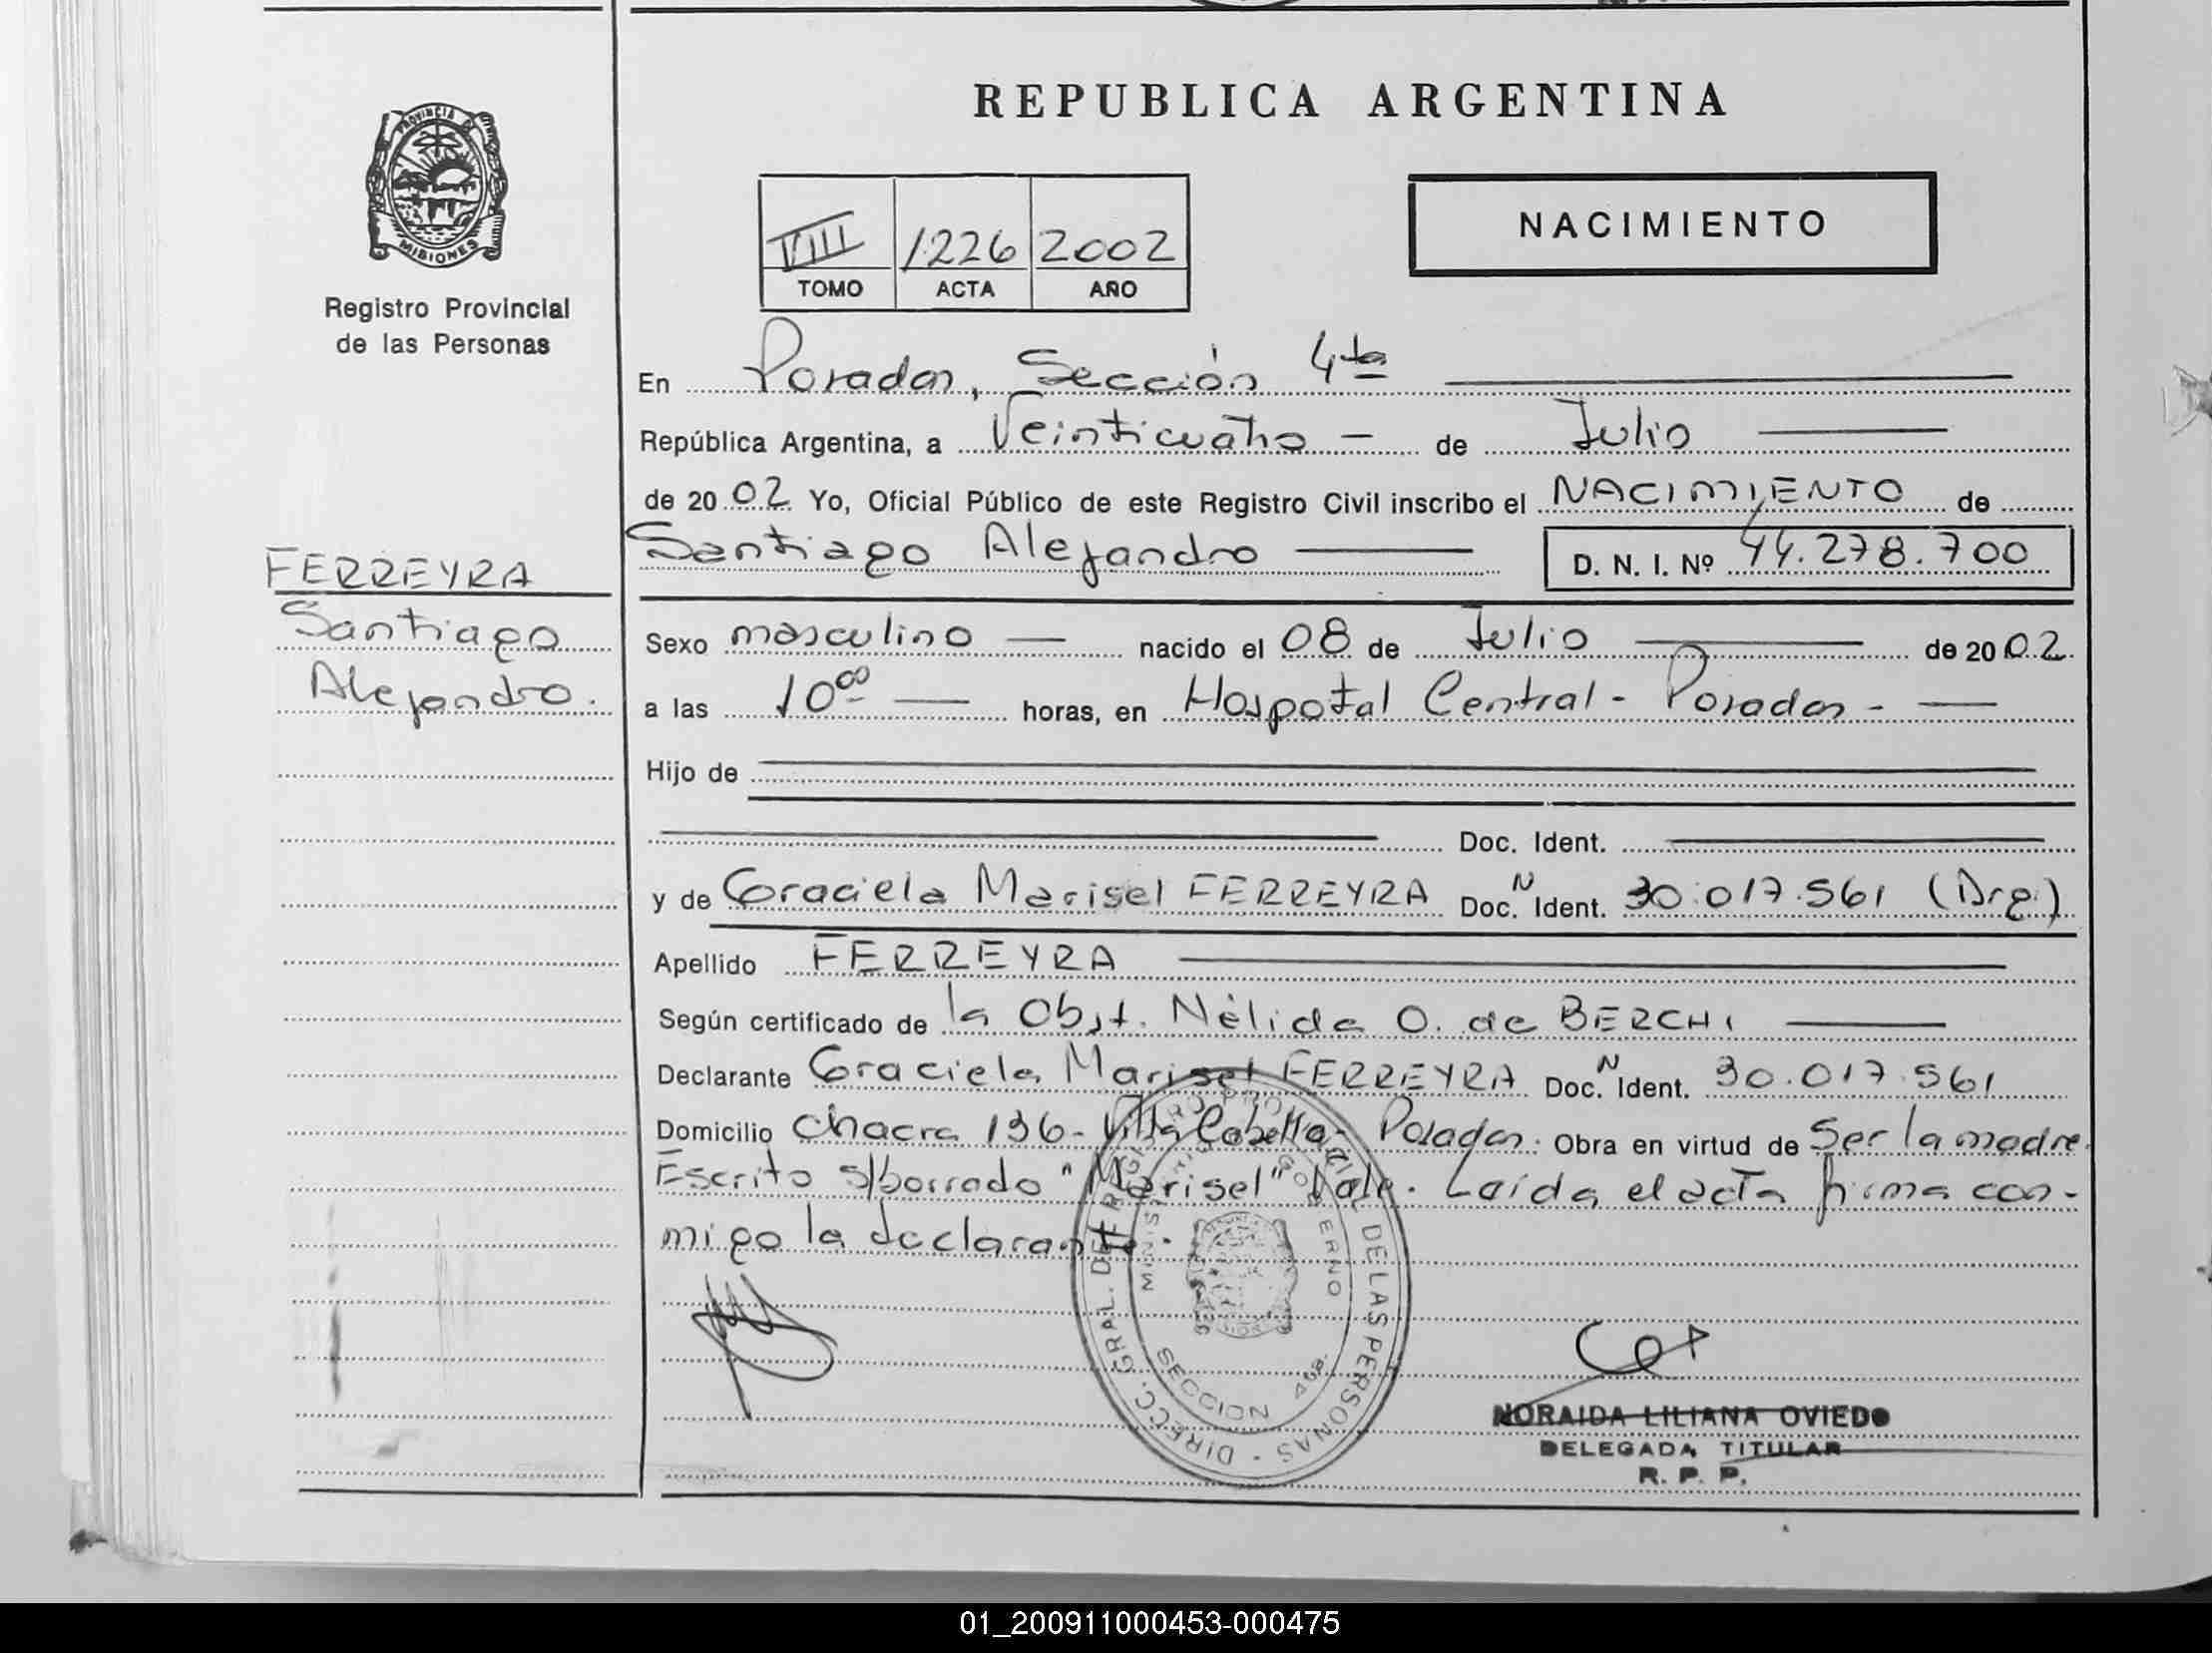 REPUBLICA ARGENTINA
PROVINCIA DE MISIONES
Registro Provincial
de las Personas
VIII 1226 2002
TOMO ACTA AÑO
NACIMIENTO
En Posadas, Sección 4ta
República Argentina, a Veinticuatro - de Julio
de 2002 Yo, Oficial Público de este Registro Civil inscribo el NACIMIENTO de
Santiago Alejandro D. N. I. Nº 44.278.700
FERREYRA
Santiago
Alejandro.
Sexo masculino nacido el 08 de Julio de 2002
a las 10 00 horas, en Hospotal Central - Posadas -
Hijo de
Doc. Ident.
y de Graciela Marisel FERREYRA Doc. N Ident. 30.017.561 (Arg.)
Apellido FERREYRA
Según certificado de la Obst. Nélida O. de BERCHI
Declarante Graciela Marisel FERREYRA Doc. N Ident. 30.017.561
Domicilio Chacra 136 - Villa Cabello - Posadas. Obra en virtud de Ser la madre.
Escrito s/borrado "Marisel" Vale. Leída el acta firma con-
migo la declarante.
DIRECC. GRAL. DEL REGISTRO PROVINCIAL DE LAS PERSONAS
MINISTERIO DE GOBIERNO
SECCION 4ta
NORAIDA LILIANA OVIEDO
DELEGADA TITULAR
R. P. P.
01_200911000453-000475